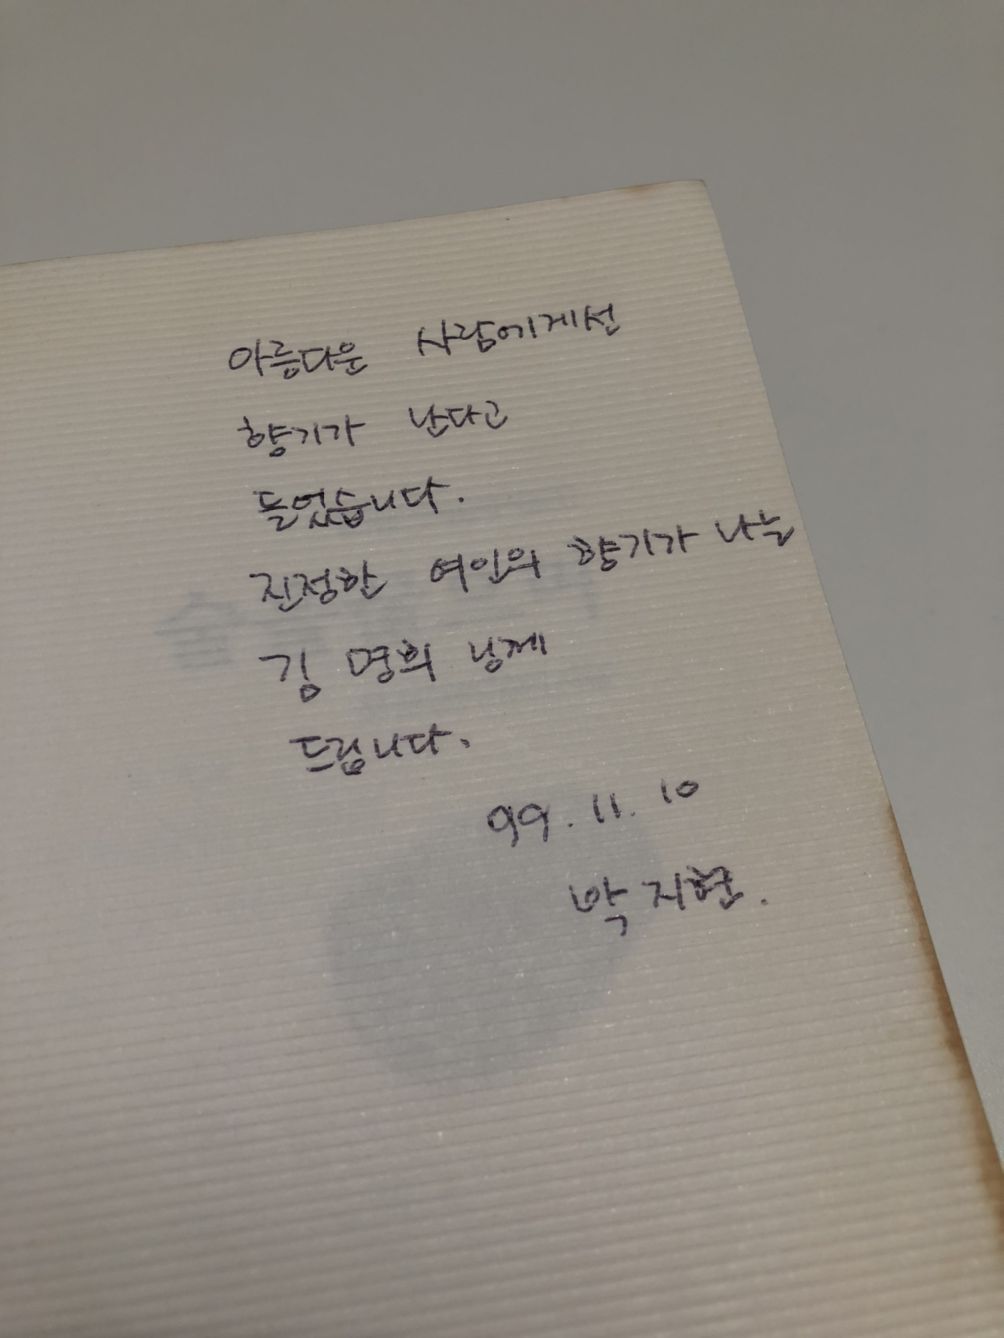 아름다운 사람에게선
향기가 난다고
들었습니다.
진정한 여인의 향기가 나는
김 명희 님께
드립니다.
99. 11. 10
박 지현.